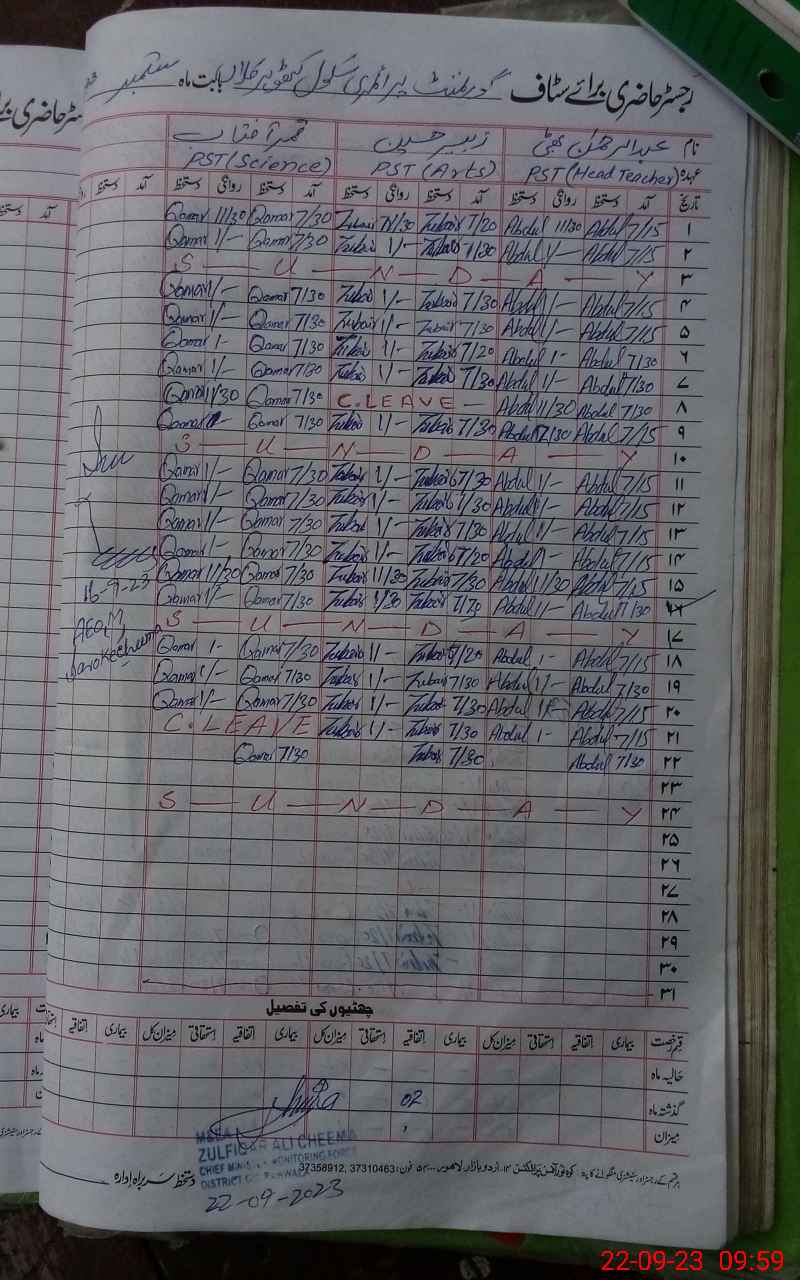 رجسٹر حاضری برائے سٹاف گورنمنٹ پرائمری سکول بابت ماہ ستمبر
نام عبدالرحمن بھٹی زبیر حسین قمر آفتاب
عہدہ PST (Head Teacher) PST (Arts) PST (Science)
تاریخ آمد دستخط روانگی دستخط آمد دستخط روانگی دستخط آمد دستخط روانگی دستخط
۱ 7/15 Abdul 11/30 Abdul 7/20 Zubair 11/30 Zubair 7/30 Qamar 11/30 Qamar
۲ 7/15 Abdul 1/- Abdul 7/30 Zubair 1/- Zubair 7/30 Qamar 1/- Qamar
۳ S — U — N — D — A — Y
۴ 7/15 Abdul 1/- Abdul 7/30 Zubair 1/- Zubair 7/30 Qamar 1/- Qamar
۵ 7/15 Abdul 1/- Abdul 7/30 Zubair 1/- Zubair 7/30 Qamar 1/- Qamar
۶ 7/30 Abdul 1- Abdul 7/20 Zubair 1/- Zubair 7/30 Qamar 1- Qamar
۷ 7/30 Abdul 1/- Abdul 7/30 Zubair 1/- Zubair 7/30 Qamar 1/- Qamar
۸ 7/30 Abdul 11/30 Abdul C.LEAVE 7/30 Qamar 11/30 Qamar
۹ 7/15 Abdul 12/30 Abdul 7/30 Zubair 1/- Zubair 7/30 Qamar Qamar
۱۰ S — U — N — D — A — Y
۱۱ 7/15 Abdul 1/- Abdul 7/30 Zubair 1/- Zubair 7/30 Qamar 1/- Qamar
۱۲ 7/15 Abdul 1/- Abdul 7/30 Zubair 1/- Zubair 7/30 Qamar 1/- Qamar
۱۳ 7/15 Abdul 1/- Abdul 7/30 Zubair 1/- Zubair 7/30 Qamar 1/- Qamar
۱۴ 7/15 Abdul 1- Abdul 7/20 Zubair 1/- Zubair 7/30 Qamar 1- Qamar
۱۵ 7/15 Abdul 11/30 Abdul 7/30 Zubair 11/30 Zubair 7/30 Qamar 11/30 Qamar
۱۶ Abdul 1/- Abdul Zubair Zubair 7/30 Qamar 1/- Qamar
16-9-23
۱۷ S — U — N — D — A — Y
AEO, M
۱۸ 7/15 Abdul 1- Abdul 7/20 Zubair 1/- Zubair 7/30 Qamar 1- Qamar
۱۹ 7/30 Abdul 1/- Abdul 7/30 Zubair 1/- Zubair 7/30 Qamar 1/- Qamar
۲۰ 7/15 Abdul Abdul 7/30 Zubair 1/- Zubair 7/30 Qamar 1/- Qamar
۲۱ 7/15 Abdul 1- Abdul 7/30 Zubair 1/- Zubair C.LEAVE
۲۲ 7/30 Abdul 7/30 Zubair 7/30 Qamar
۲۳
۲۴ S — U — N — D — A — Y
۲۵
۲۶
۲۷
۲۸
۲۹
۳۰
۳۱
چھٹیوں کی تفصیل
قسم رخصت بیماری اتفاقیہ استحقاقی میزان کل بیماری اتفاقیہ استحقاقی میزان کل بیماری اتفاقیہ استحقاقی میزان کل بیماری اتفاقیہ
حالیہ ماہ
گذشتہ ماہ 02
میزان
MEEA
ZULFIQAR ALI CHEEMA
CHIEF MINISTER MONITORING FORCE
DISTRICT
22-09-2023
37358912, 37310463
دستخط سربراہ ادارہ
22-09-23 09:59